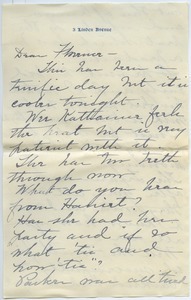 3 Linden Avenue
Dear Florence –
This has been a
terrific day but it is
cooler tonight.
Wee Katharine feels
the heat but is very
patient with it.
She has two teeth
through now
What do you hear
from Harriet?
Has she had her
party and if so
what 'tis and
how 'tis"?
was all tired